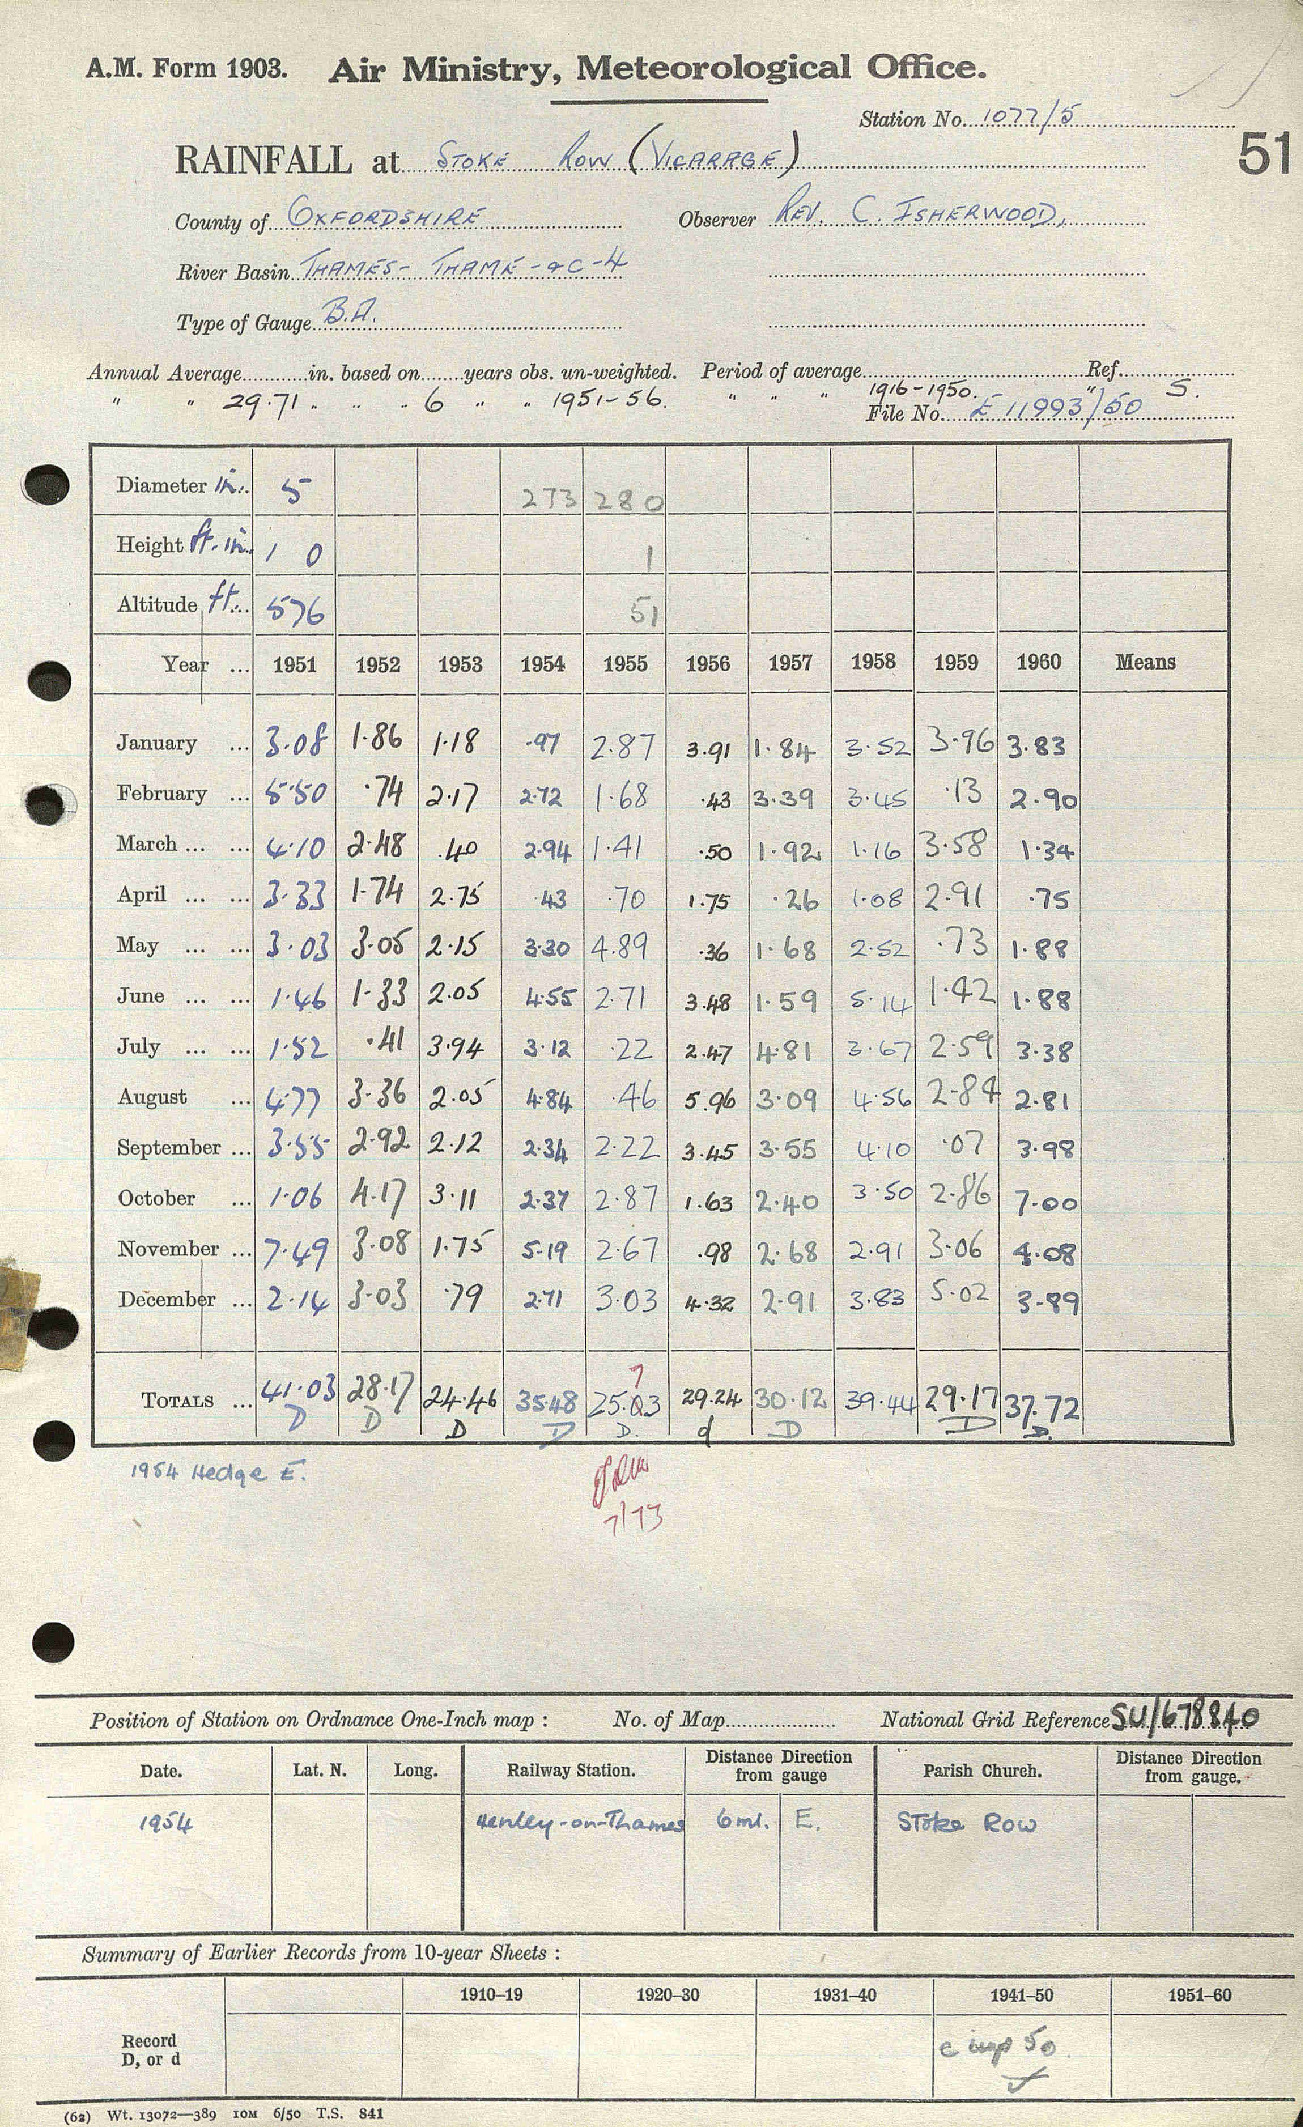 A.M. Form 1903. Air Ministry, Meteorological Office.
Station No. 1077/5
51
RAINFALL at STOKE ROW (VICARAGE)
County of OXFORDSHIRE Observer REV. C. ISHERWOOD,
River Basin THAMES - THAME - &C - 4
Type of Gauge B.A.
Annual Average in. based on years obs. un-weighted. Period of average Ref.
" " 29.71 " " " 6 " " 1951-56. " " " 1916-1950. " S.
File No. E 11993/50
Diameter in. 5 273 280
Height ft. in. 1 0 1
Altitude ft. 576 51
Year ... 1951 1952 1953 1954 1955 1956 1957 1958 1959 1960 Means
January ... 3.08 1.86 1.18 .97 2.87 3.91 1.84 3.52 3.96 3.83
February ... 5.50 .74 2.17 2.72 1.68 .43 3.39 3.45 .13 2.90
March ... ... 4.10 2.48 .40 2.94 1.41 .50 1.92 1.16 3.58 1.34
April ... ... 3.33 1.74 2.75 .43 .70 1.75 .26 1.08 2.91 .75
May ... ... 3.03 3.05 2.15 3.30 4.89 .36 1.68 2.52 .73 1.88
June ... ... 1.46 1.33 2.05 4.55 2.71 3.48 1.59 5.14 1.42 1.88
July ... ... 1.52 .41 3.94 3.12 .22 2.47 4.81 3.67 2.59 3.38
August ... 4.77 3.36 2.05 4.84 .46 5.96 3.09 4.56 2.84 2.81
September ... 3.55 2.92 2.12 2.34 2.22 3.45 3.55 4.10 .07 3.98
October ... 1.06 4.17 3.11 2.37 2.87 1.63 2.40 3.50 2.86 7.00
November ... 7.49 3.08 1.75 5.19 2.67 .98 2.68 2.91 3.06 4.08
December ... 2.14 3.03 .79 2.71 3.03 4.32 2.91 3.83 5.02 3.89
7
TOTALS ... 41.03 28.17 24.46 35.48 25.03 29.24 30.12 39.44 29.17 37.72
D D D D D. d D D D.
1954 Hedge E.
7/73
Position of Station on Ordnance One-Inch map : No. of Map National Grid Reference SU/678840
Date. Lat. N. Long. Railway Station. Distance Direction from gauge Parish Church. Distance Direction from gauge.
1954 Henley-on-Thames 6 ml. E. Stoke Row
Summary of Earlier Records from 10-year Sheets :
1910–19 1920–30 1931–40 1941–50 1951–60
Record
D, or d
c inp 50
(62) Wt. 13072—389 IOM 6/50 T.S. 841